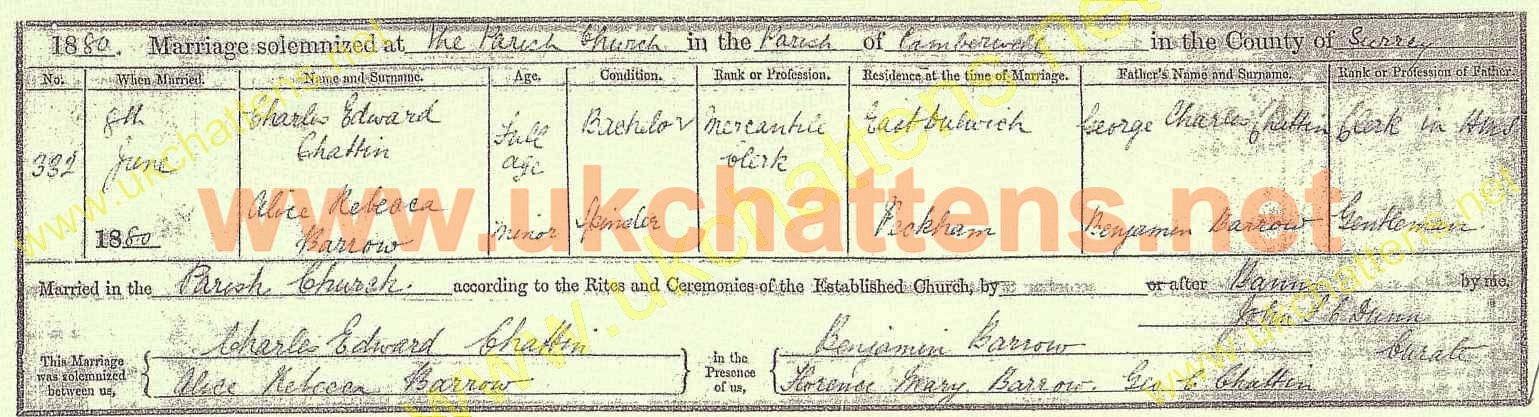 1880. Marriage solemnized at The Parish Church in the Parish of Camberwell in the County of Surrey
No. When Married. Name and Surname. Age. Condition. Rank or Profession. Residence at the time of Marriage. Father's Name and Surname. Rank or Profession of Father.
332 8th June 1880 Charles Edward Chattin Full age Bachelor Mercantile Clerk East Dulwich George Charles Chattin Clerk in
Alice Rebecca Barrow Minor Spinster Peckham Benjamin Barrow Gentleman.
Married in the Parish Church. according to the Rites and Ceremonies of the Established Church, by or after Banns by me,
John Dunn
Curate
This Marriage was solemnized between us, Charles Edward Chattin In the Presence of us, Benjamin Barrow
Alice Rebecca Barrow Florence Mary Barrow. Geo. C Chattin
www.ukchattens.net
www.ukchattens.net
www.ukchattens.net
www.ukchattens.net
www.ukchattens.net